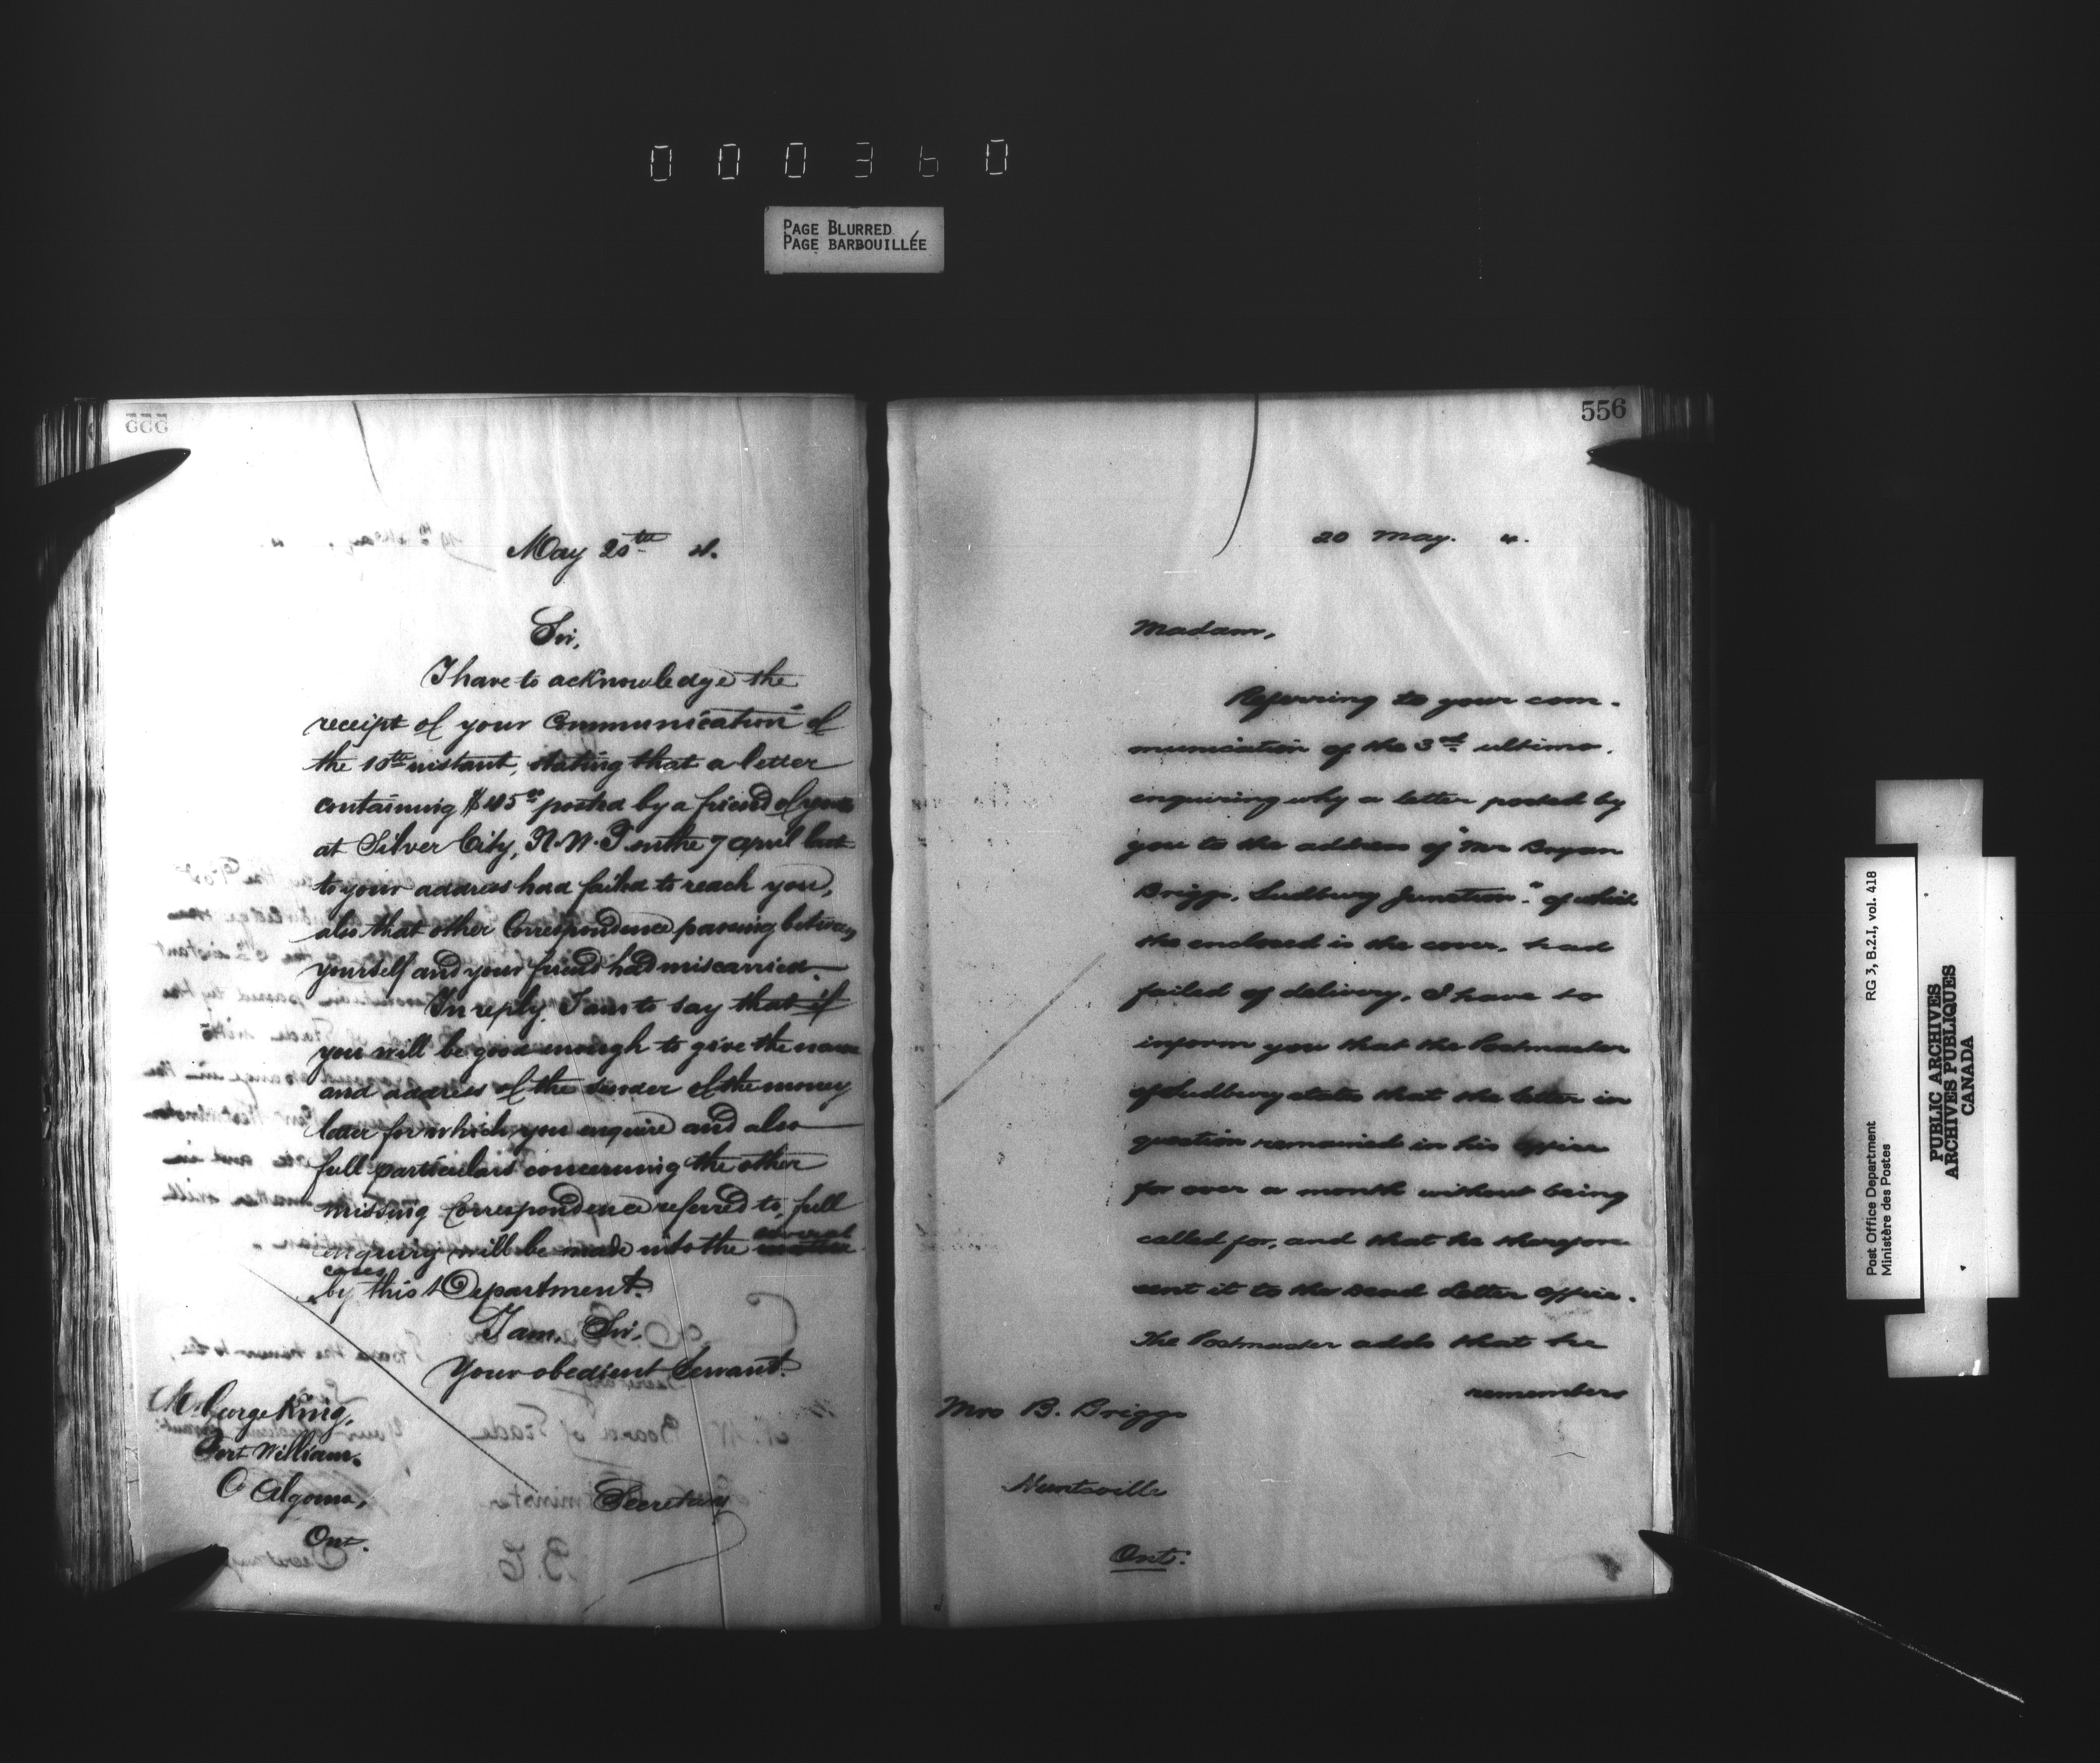 000360
PAGE BLURRED
PAGE BARBOUILLÉE
555
May 20th 4.
Sir,
I have to acknowledge the
receipt of your Communication of
the 10th instant, stating that a letter
containing $45.00 posted by a friend of yours
at Silver City, N.W.T. on the 7 April last
to your address had failed to reach you,
also that other Correspondence passing between
yourself and your friend had miscarried.
In reply, I am to say that if
you will be good enough to give the name
and address of the sender of the money
letter for which you enquire and also
full particulars concerning the other
missing Correspondence referred to, full
enquiry will be made into the several
cases
by this Department.
I am, Sir,
Your obedient Servant.
Mr. George King,
Fort William,
Co Algoma,
Ont.
Secretary
556
20 May. 4.
Madam,
Referring to your com-
munication of the 3rd ultimo,
enquiring why a letter posted by
you to the address of "Mr Bryan
Briggs, Sudbury Junction." of which
the enclosed is the cover, had
failed of delivery, I have to
inform you that the Postmaster
of Sudbury states that the letter in
question remained in his office
for over a month without being
called for, and that he thereupon
sent it to the Dead Letter Office.
The Postmaster adds that he
remembers
Mrs B. Briggs
Huntsville
Ont.
RG 3, B.2.I, vol. 418
Post Office Department
Ministère des Postes
PUBLIC ARCHIVES
ARCHIVES PUBLIQUES
CANADA